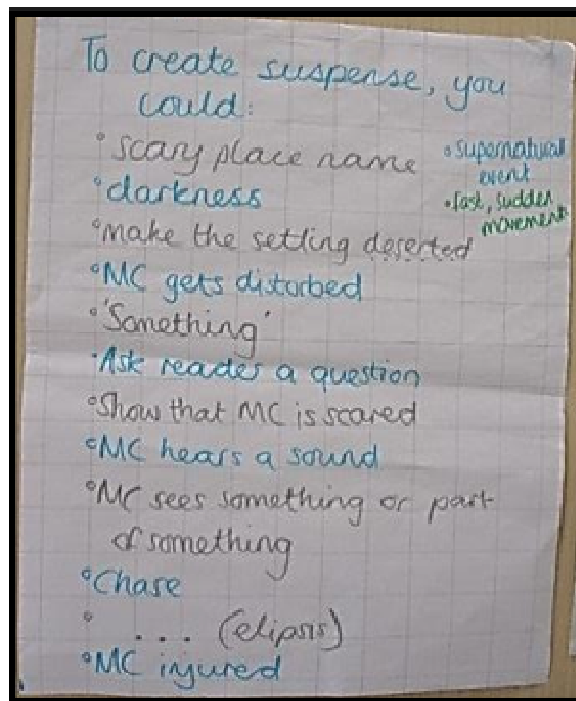 To create suspense, you
could:
° scary place name
° darkness
° make the setting deserted
° MC gets disturbed
° 'Something'
· Ask reader a question
° Show that MC is scared
° MC hears a sound
° MC sees something or part
of something
° Chase
° ... (elipsis)
° MC injured
° Supernatural
event
· Fast, sudden
movement